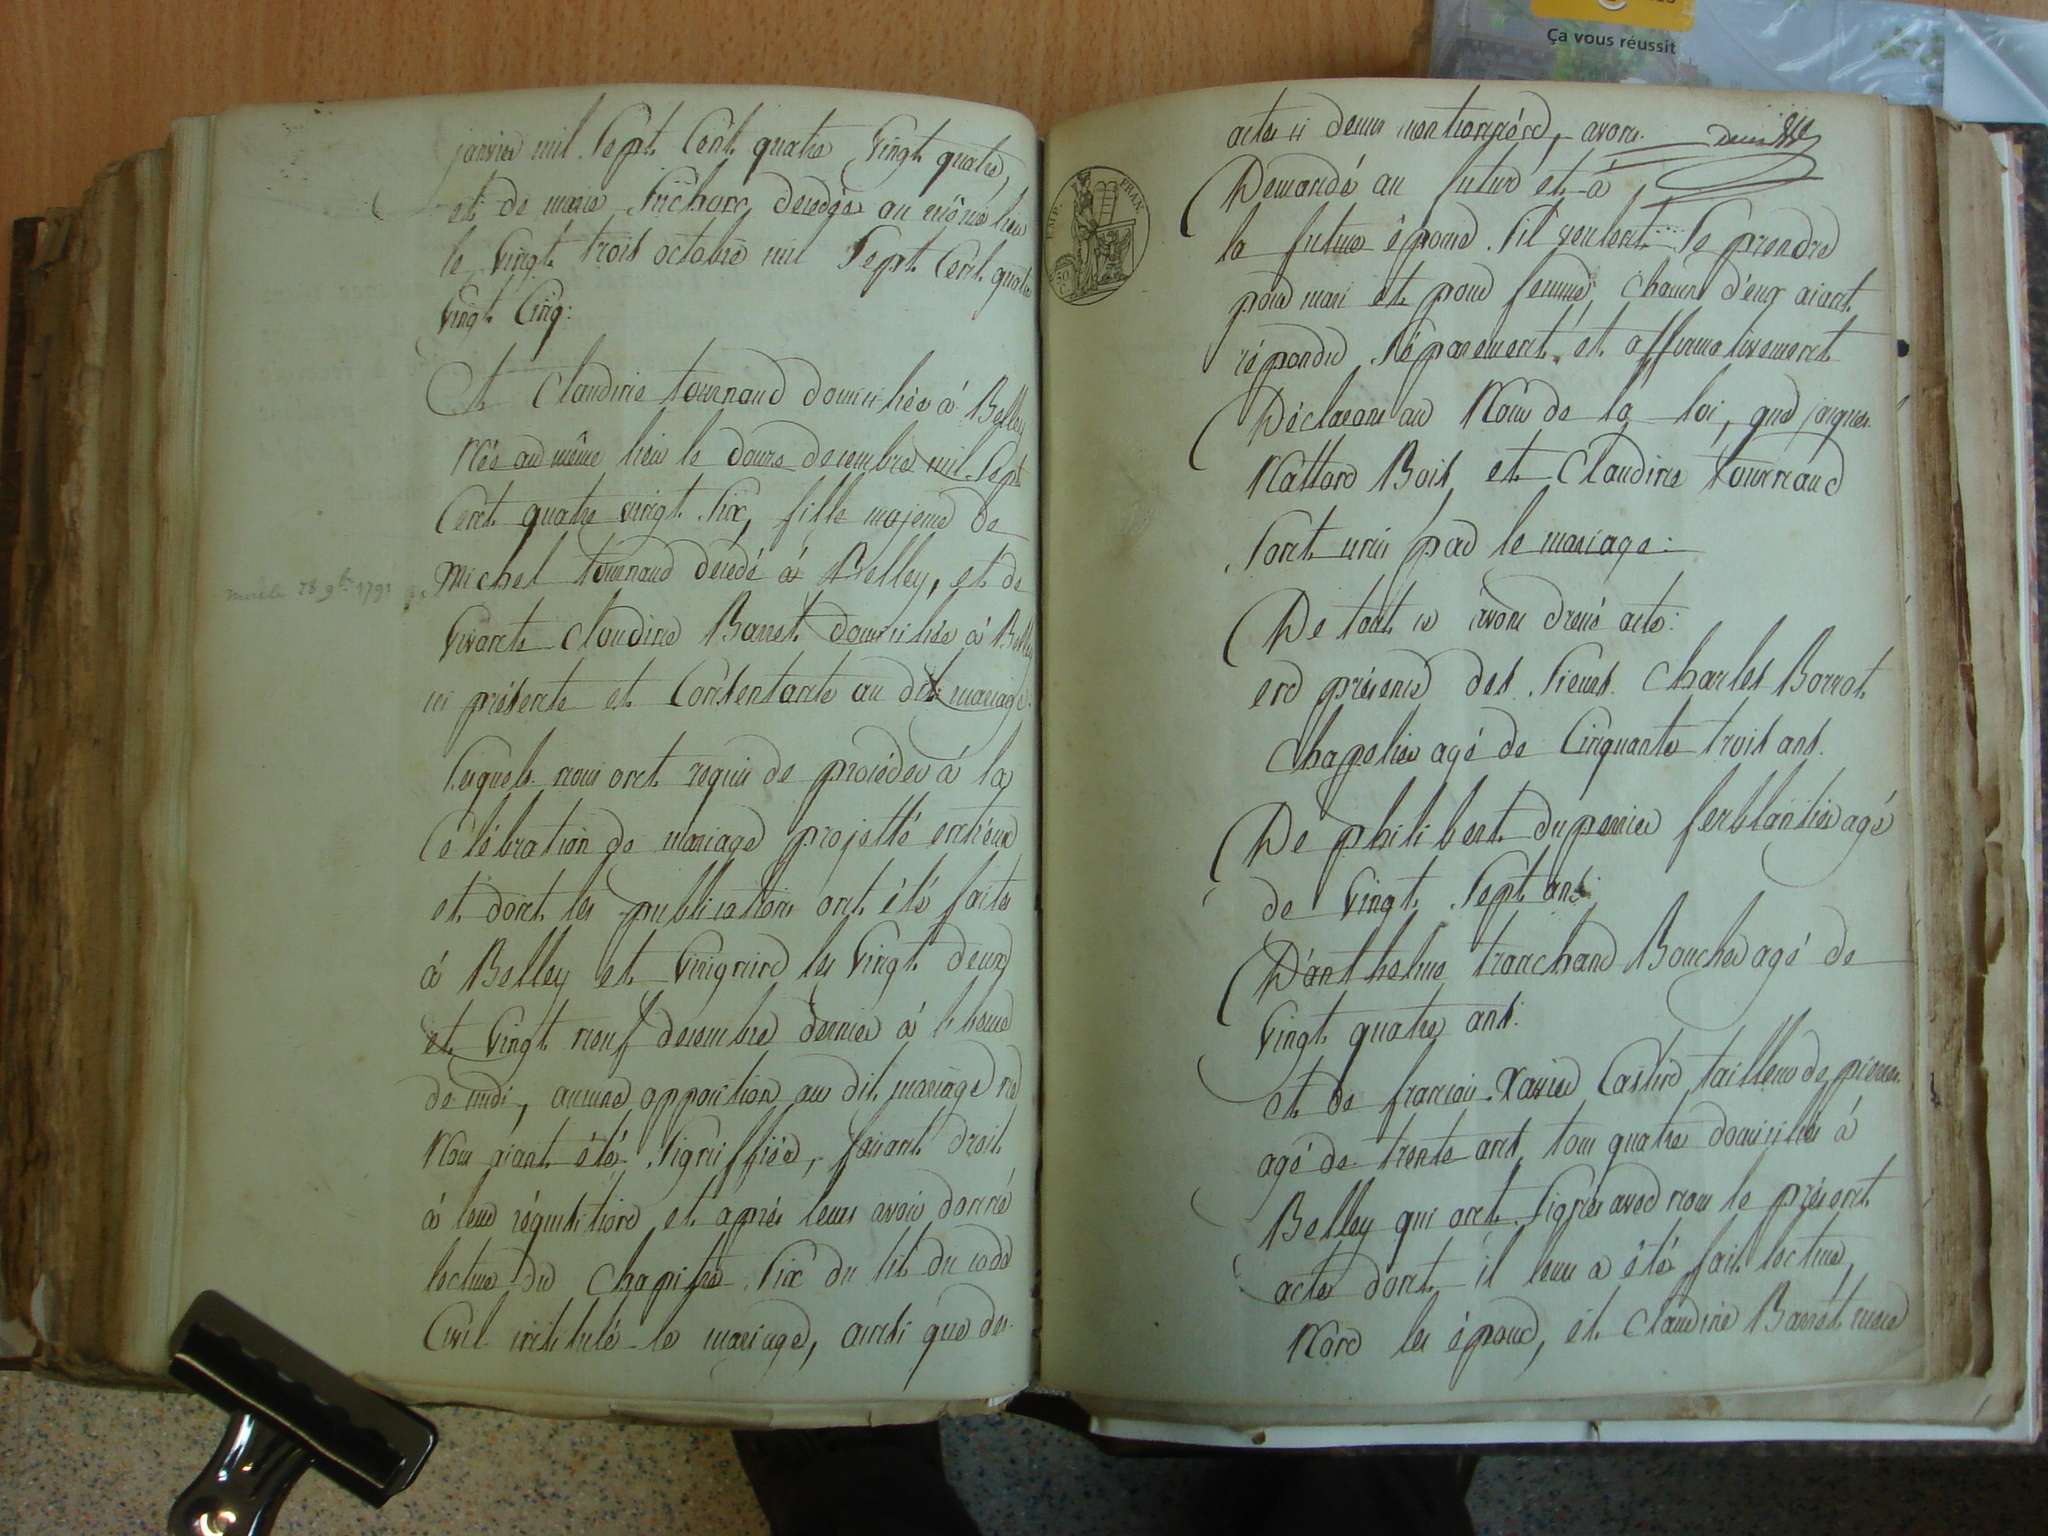 janvier mil Sept Cent quatre Vingt quatre,
et de marie décédée au même lieu
le Vingt trois octobre mil Sept Cent quatre
Vingt Cinq:
Et Claudine tournaud domiciliée à Belley
Née au même lieu le douze decembre mil Sept
Cent quatre vingt Six, fille majeure de
Michel tournaud décédé à Belley, et de
Vivante Claudine Barret domiciliée à Belley
ici présente et Consentante au dit mariage.
Lesquels nous ont requis de procéder à la
Célébration de mariage projetté entr'eux
et dont les publications ont été faites
à Belley et Virignin les Vingt deux
et Vingt neuf decembre dernier à l'heure
de midi, aucune opposition au dit mariage ne
Nous aiant été Signiffiée, faisant droit
à leur réquisition et après leurs avoir donné
lecture du Chapitre Six du tit. du code
Civil intitulé le mariage, ainsi que des
morte 28 9bre 1791
actes ci dessus mentionnérd, avons
Demandé au futur et à
la future épouse S'il veulent Se prendre
pour mari et pour femme, chacun d'eux aiant
répondu Séparement et affirmativement
Déclarons au Nom de la loi, que jacques
Nattard Bois et Claudine tournaud
Sont unis par le mariage:
De tout ce avons dressé acte:
en présence des Sieurs Charles Borrot
Chapelier agé de Cinquante trois ans.
De philibert dupernier ferblantier agé
de Vingt Sept ans:
D'anthelme tranchand Boucher agé de
Vingt quatre ans.
et de françois Xavier tailleur de pierres
agé de trente ans tous quatre domiciliés à
Belley qui ont Signés avec nous le présent
acte dont il leur a été fait lecture,
Non les époux, et Claudine Barret mere
EMP. FRAN.
Ça vous réussit